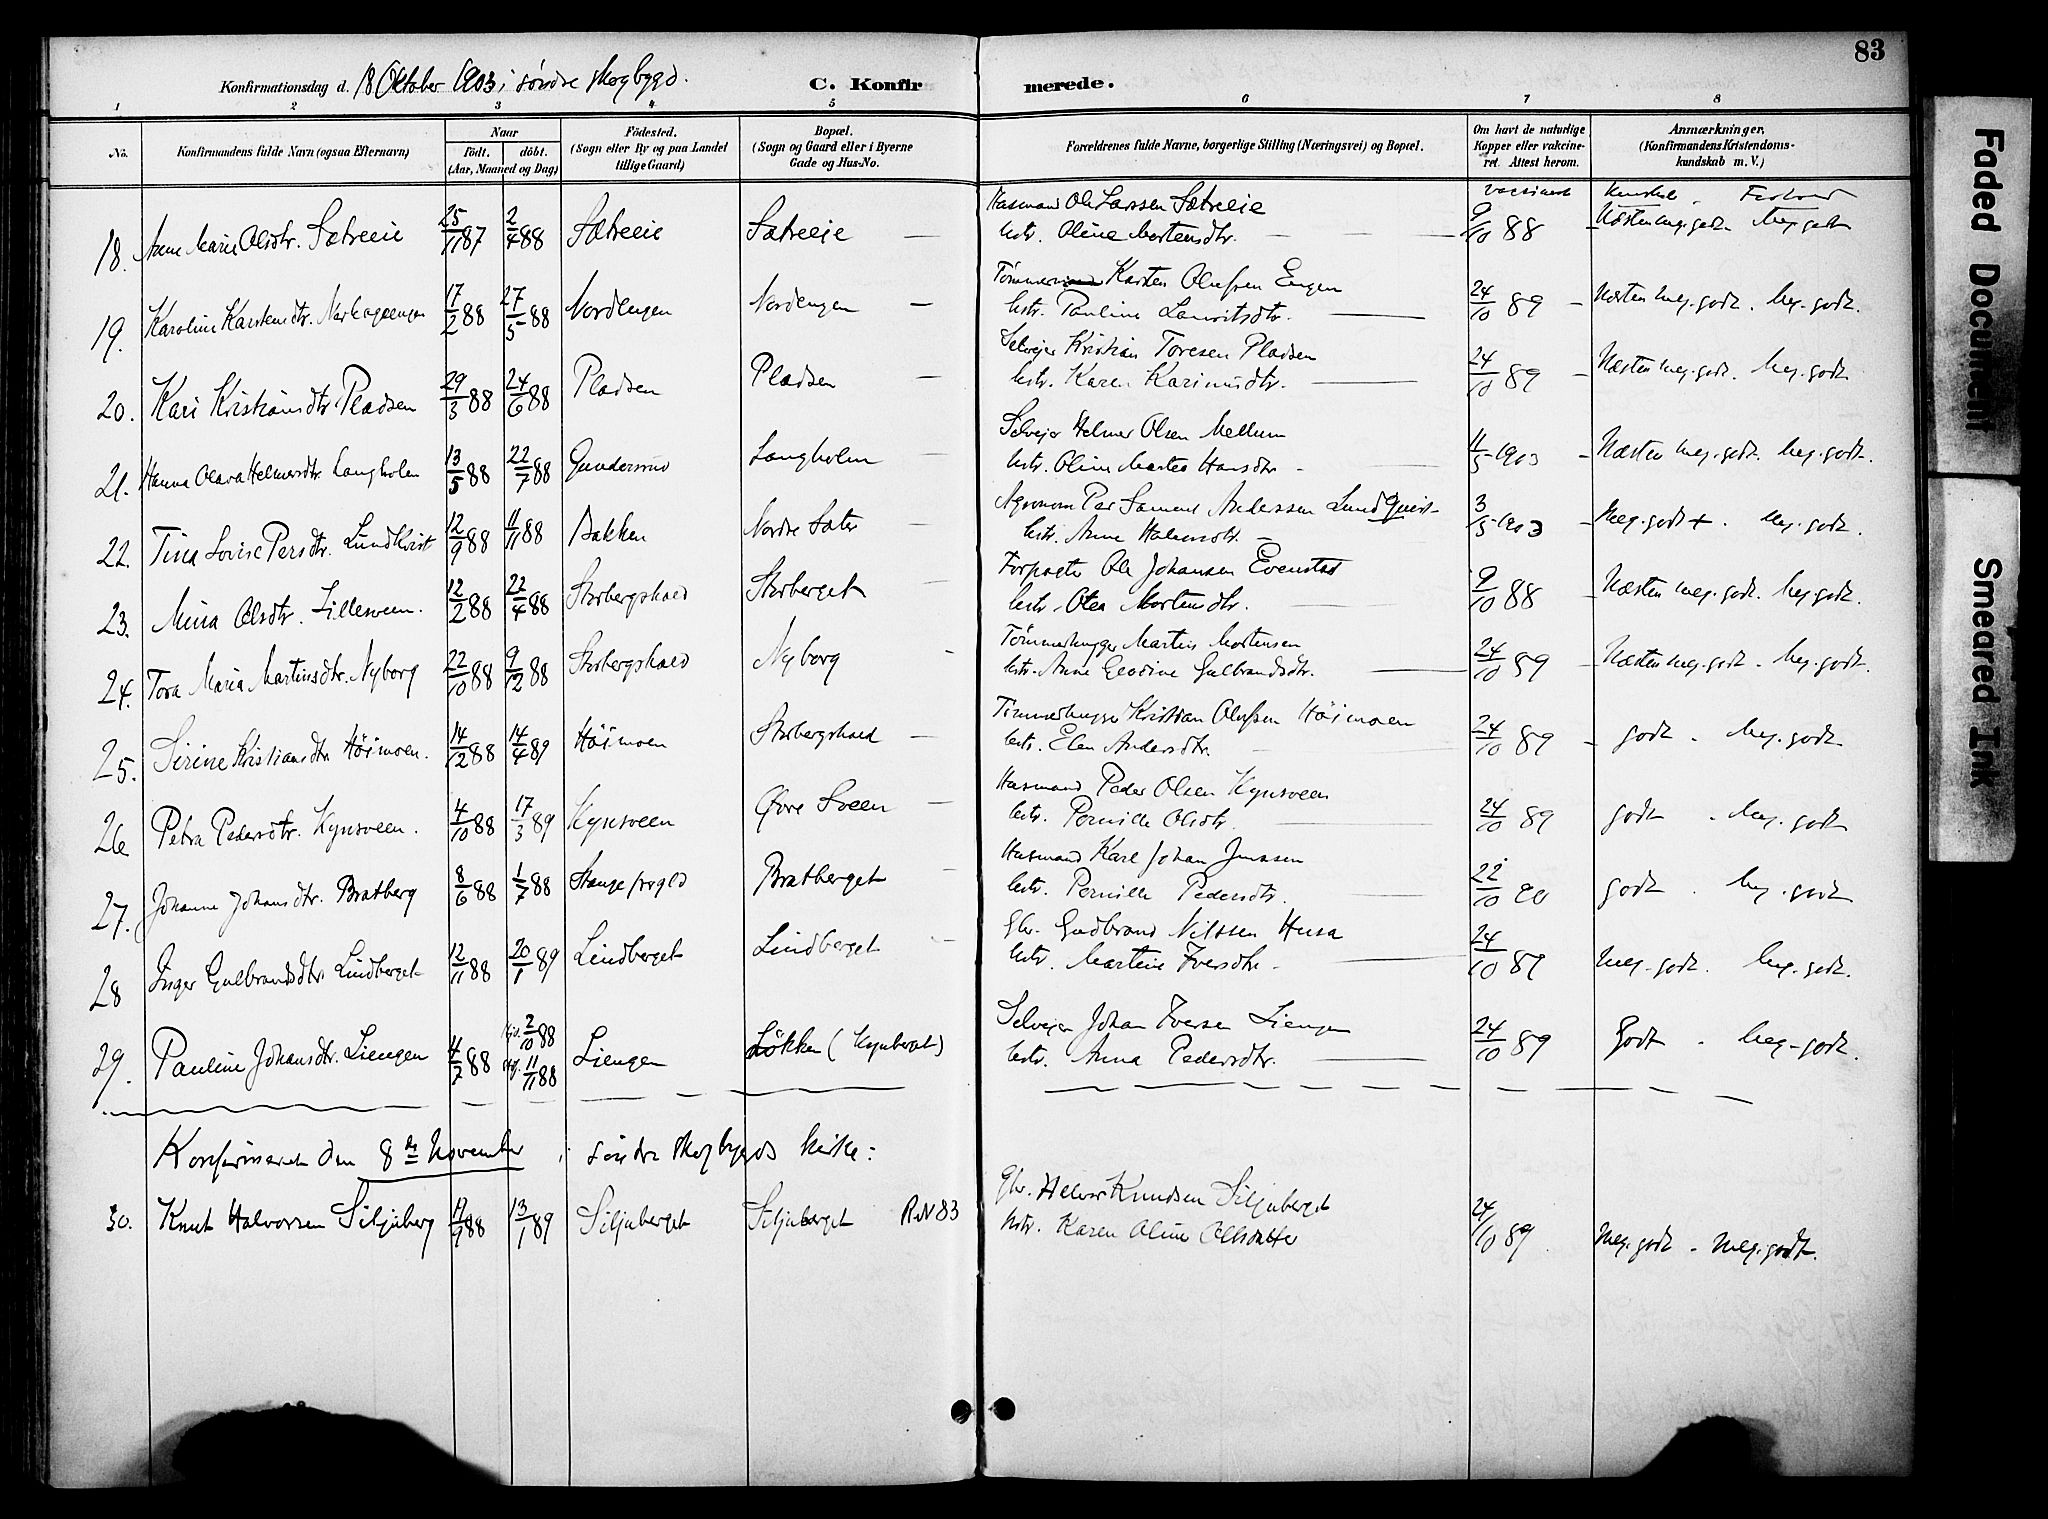 83
Konfirmationsdag d. 18 Oktober 1903 i søndre skogbygd.
C. Konfirmerede.
1 2 3 4 5 6 7 8
No.
Konfirmandens fulde Navn (ogsaa Efternavn)
Naar
født. døbt.
(Aar, Maaned og Dag)
Fødested.
(Sogn eller By og paa Landet tillige Gaard)
Bopæl.
(Sogn og Gaard eller i Byerne Gade og Hus-No.
Forældrenes fulde Navne, borgerlige Stilling (Næringsvei) og Bopæl.
Om havt de naturlige Kopper eller vaccineret. Attest herom.
Anmærkninger.
(Konfirmandens Kristendomskundskab m. V.)
18. Anne Marie Olsdtr. Sætreeie 25/11 87 2/4 88 Sætreeie Sætreeie — Husmand Ole Larssen Sætreeie
hstr. Oline Mortensdtr. 9/10 88 Næsten meg. godt. Meg. godt
19. Karoline Karstensdtr. 17/2 88 27/5 88 Nordengen Nordengen — Karsten Olufsen Engen
hstr. Pauline Lauritsdtr. 24/10 89 Næsten meg. godt. Meg. godt.
20. Kari Kristiansdtr. Pladsen 29/3 88 24/6 88 Pladsen Pladsen — Selvejer Kristian Toresen Pladsen
hstr. Karen Karinusdtr. 24/10 89 Næsten meg. godt. Meg. godt
21. Hanna Olava Helmersdtr. Langholm 13/5 88 22/7 88 Gundersrud Langholm — Selvejer Helmer Olsen Mellum
hstr. Oline Martea Hansdtr 11/5 1903 Næsten meg. godt. Meg. godt.
22. Tina Lovise Persdtr. Lundkvist 12/9 88 11/11 88 Bakken Nordre Sæter — Agronom Per Samuel Anderssen Lundquist
hstr. Anne Halvorsdtr. 3/5 1903 Meg. godt +. Meg. godt.
23. Mina Olsdtr. Lillesveen. 12/2 88 22/4 88 Storbergshaed Storberget — Forpagter Ole Johansen Evenstad
hstr. Otea Mortensdtr. 9/10 88 Næsten meg. godt. Meg godt.
24. Tora Maria Martinsdtr. Nyborg 22/10 88 9/12 88 Storbergshaed Nyborg - Tømmerhugger Martin Mortensen
hstr. Anne Gulbrandsdtr. 24/10 89 Næsten meg. godt. Meg. godt.
25. Sirine Kristiansdtr. Høimoen. 14/12 88 14/4 89 Høimoen Storbergshaed — Tømmerhugger Kristian Olufsen Høimoen
hstr. Elen Andersdtr. 24/10 89 godt. Meg. godt
26 Petra Pedersdtr. Kynsveen. 4/10 88 17/3 89 Kynsveen Øvre Sveen — Husmand Peder Olsen Kynsveen
hstr. Pernille Olsdtr. 24/10 89 godt. Meg. godt
27. Johanne Johansdtr. Bratberg 8/6 88 1/7 88 Stange Bratberget — Husmand Karl Johan
hstr. Pernille Pedersdtr. 22/10 godt. Meg. godt
28 Inger Gulbrandsdtr. Lindberget 12/11 88 20/1 89 Lindberget Lindberget — Gbr. Gudbrand Nilssen Husa
hstr. Martine Iversdtr. 24/10 89 Meg. godt. Meg. godt.
29. Pauline Johansdtr. Liengen 4/7 88 2/10 88 11/11 88 Liengen Løkken (Kynberget) Selvejer Johan Iversen Liengen
hstr. Anna Pedersdtr. 24/10 89 Godt. Meg. godt.
Konfirmeret den 8de November i søndre skogbygds kirke:
30. Knut Halvorsen Siljuberg 17/9 88 13/1 89 Siljuberget Siljuberget RN 83 Gbr. Halvor Knudsen Siljuberget
hstr. Karen Oline Olsdatter 24/10 89. Meg. godt. Meg. godt.
Faded Document
Smeared Ink